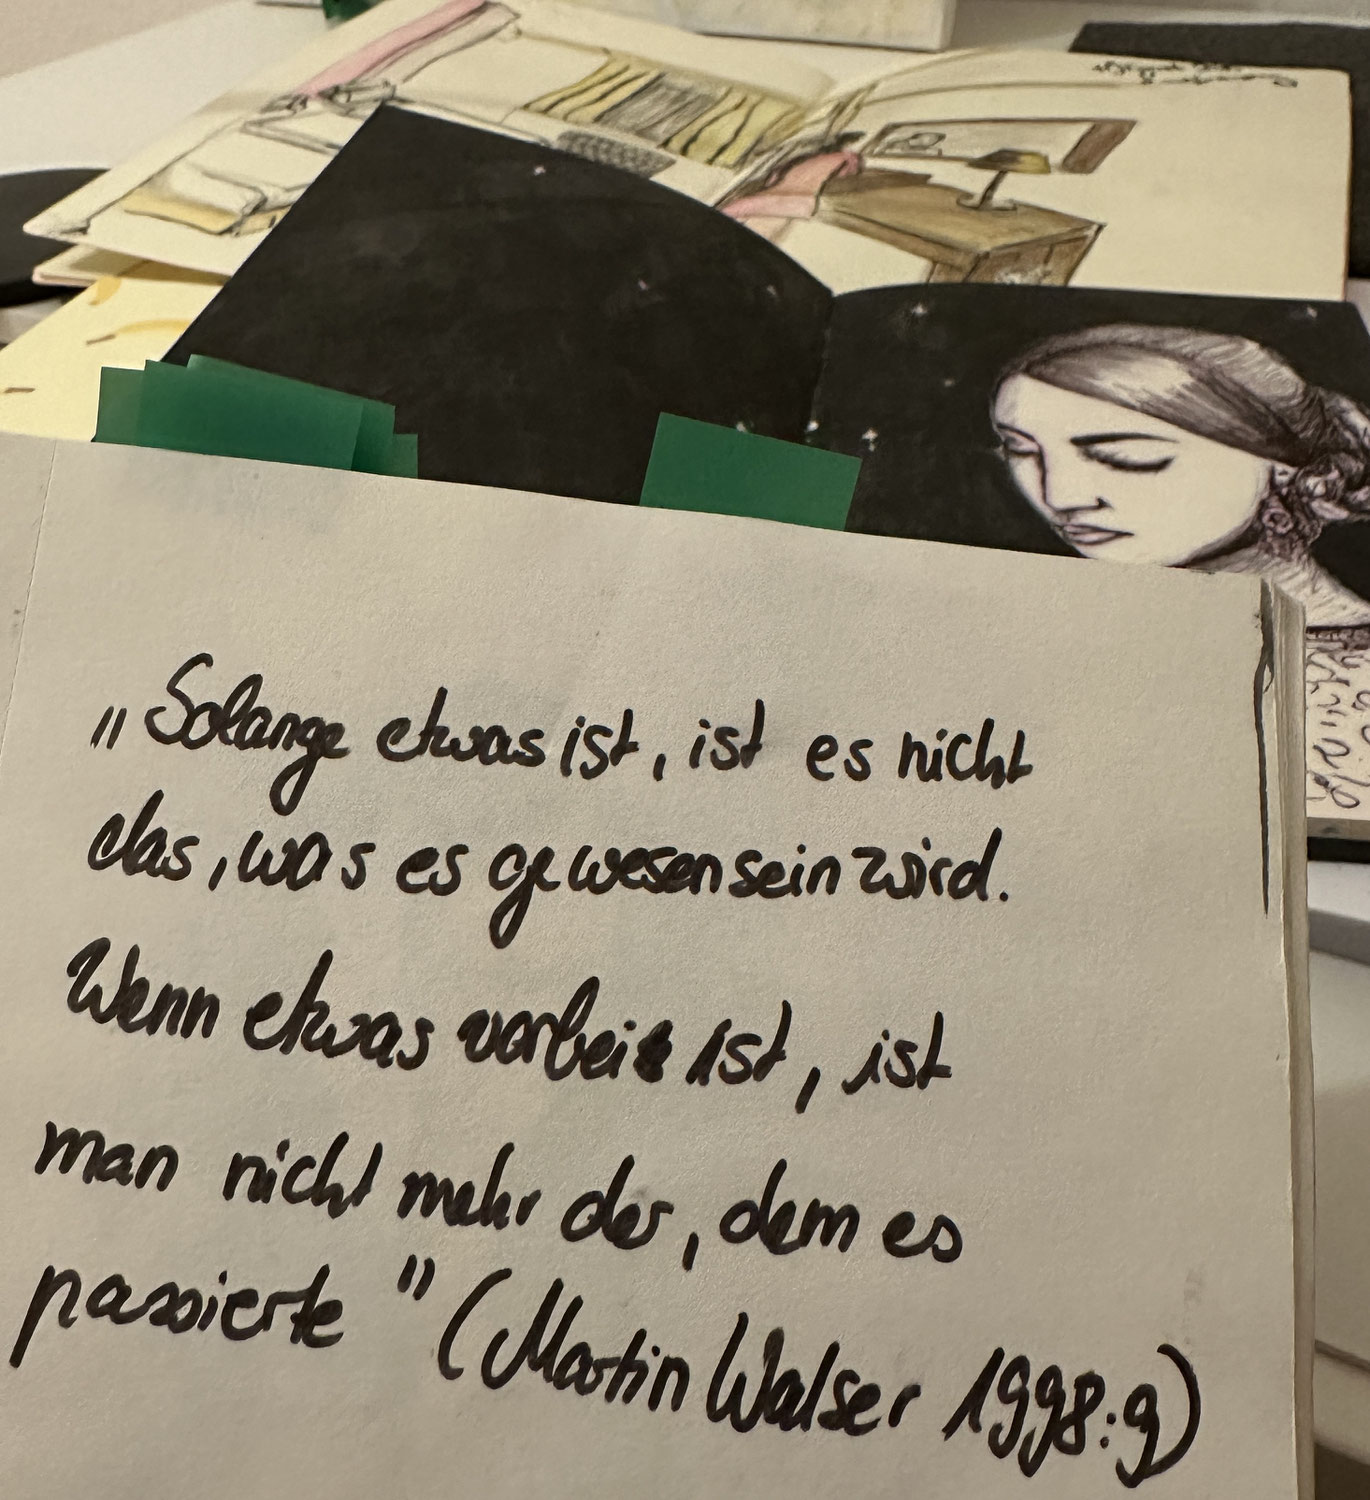 "Solange etwas ist, ist es nicht
das, was es gewesen sein wird.
Wenn etwas vorbei ist, ist
man nicht mehr der, dem es
passierte" (Martin Walser 1998:9)